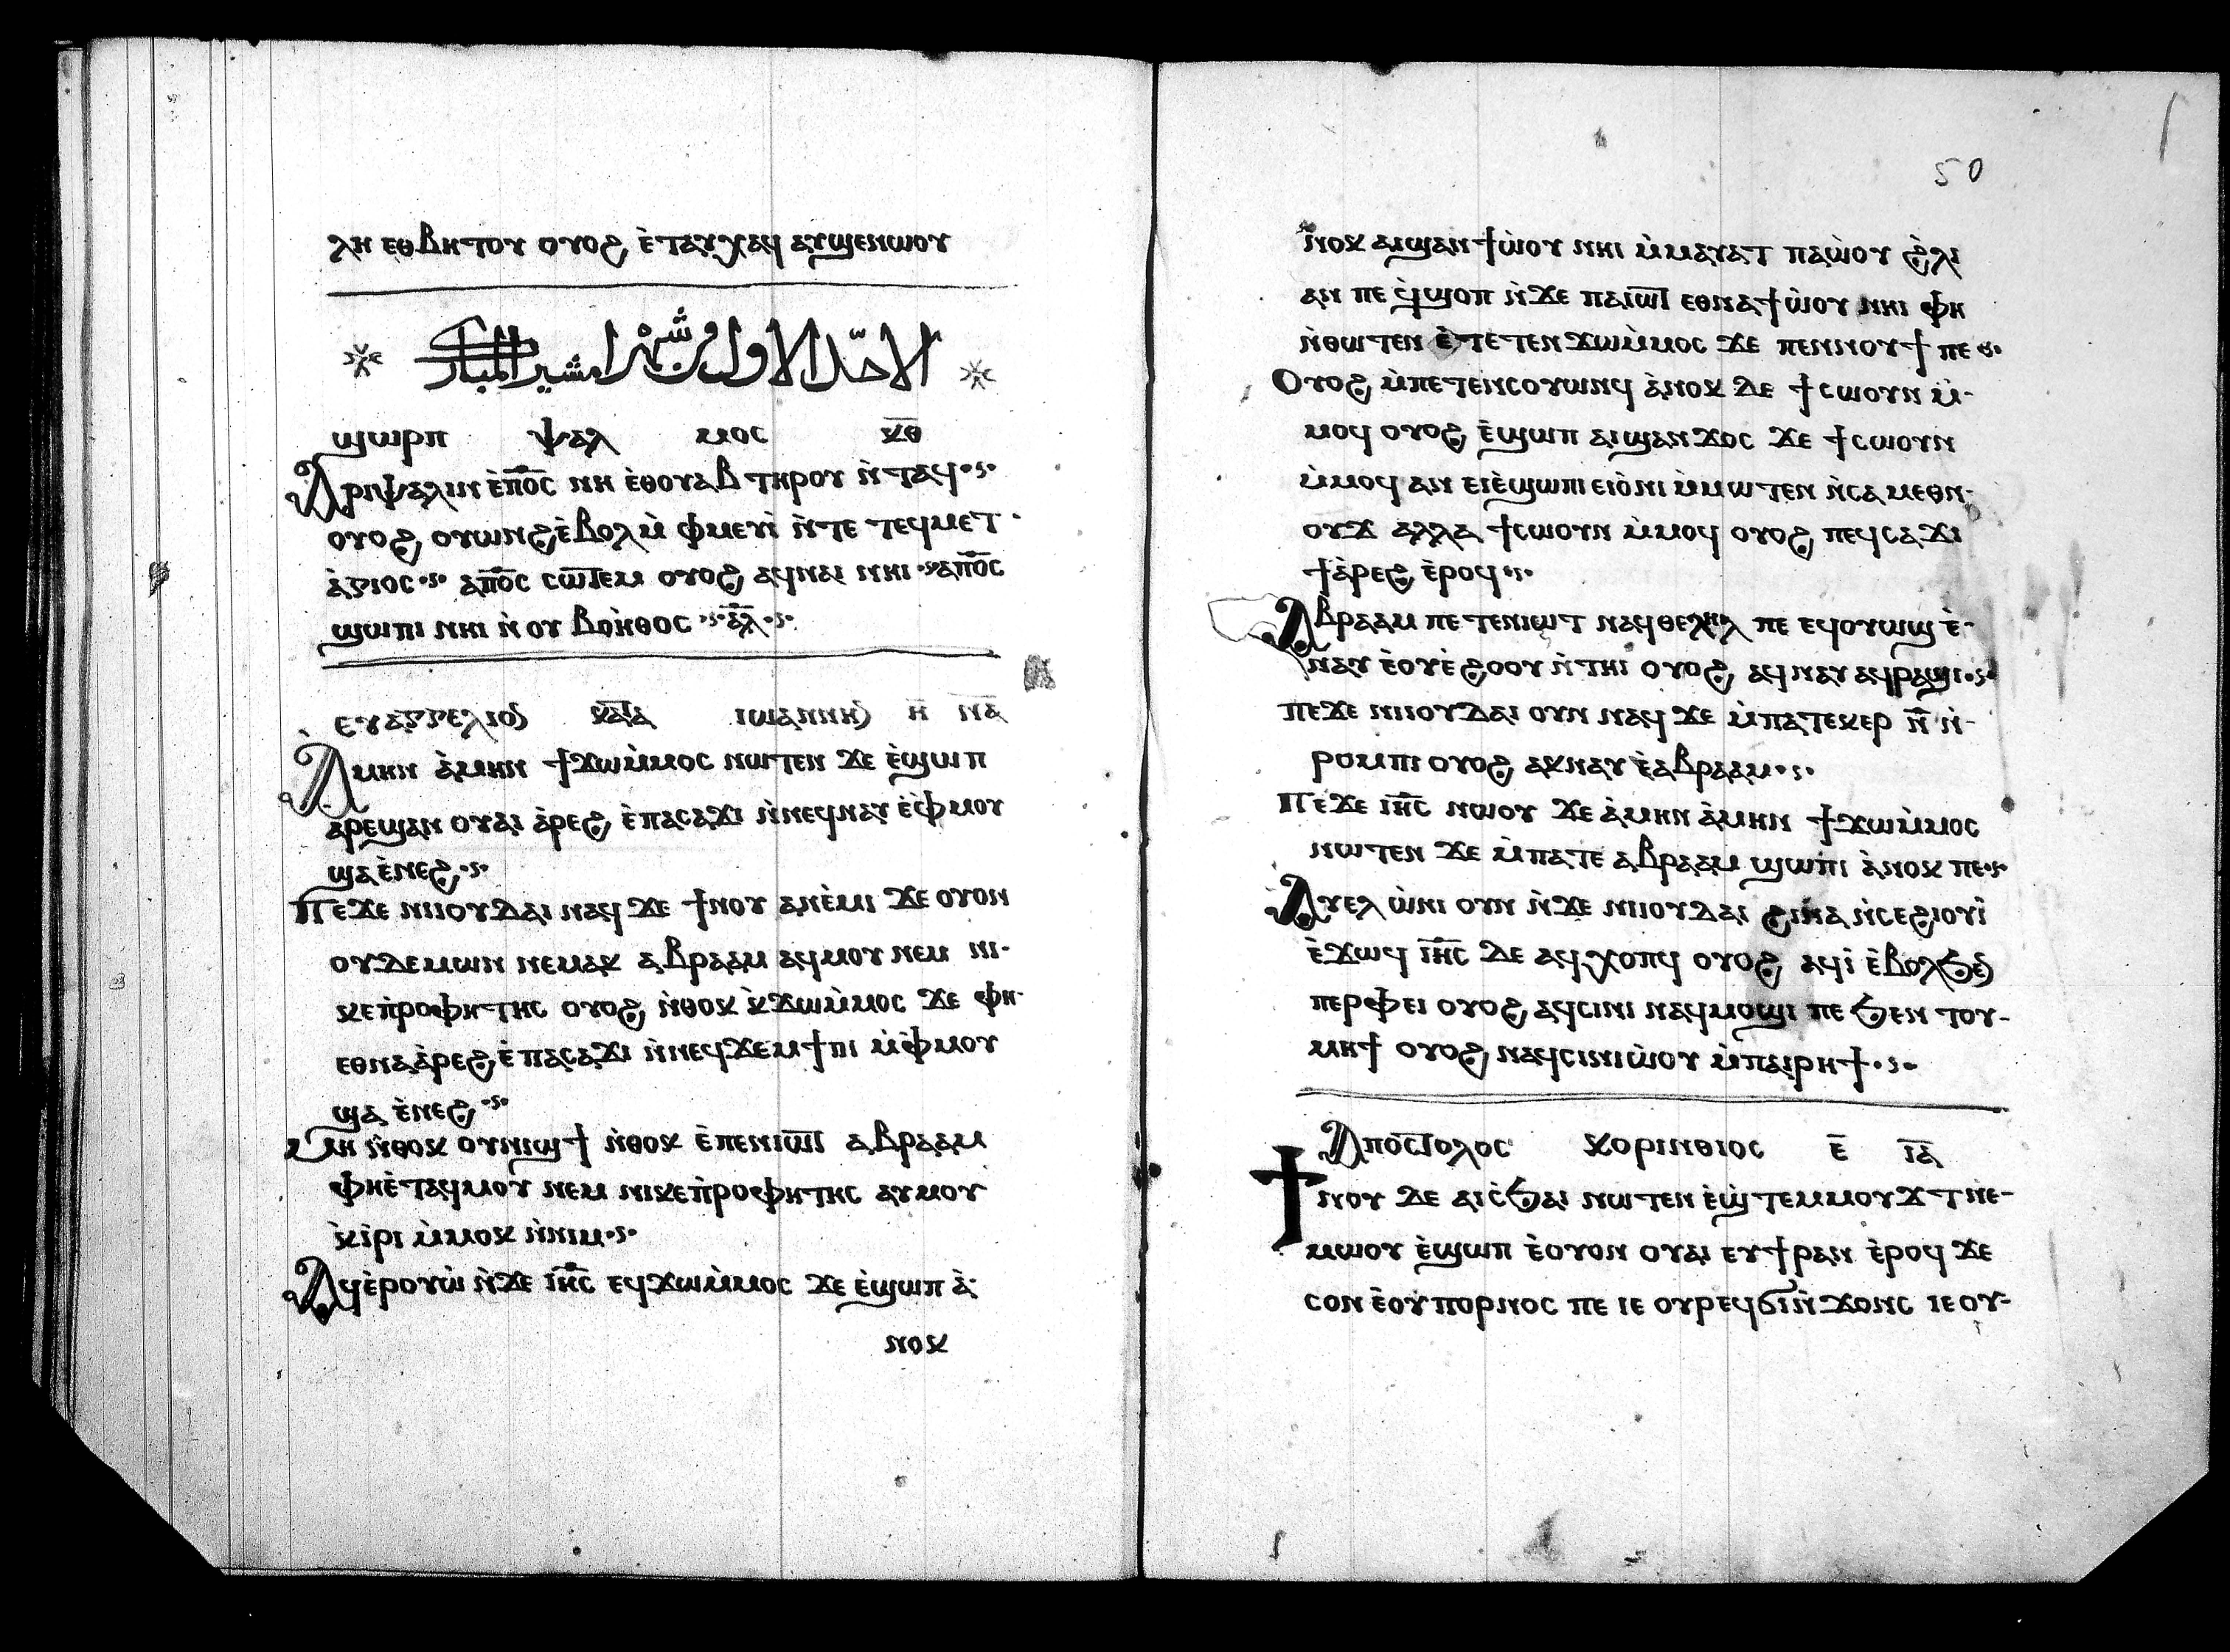 ⲗⲏ ⲉⲑⲃⲏⲧⲟⲩ ⲟⲩⲟϩ ⲉ̀ⲧⲁⲩⲭⲁϥ ⲁⲩϣⲉⲛⲱⲟⲩ
الاحد الاول من شهر امشير المبارك
ϣⲱⲣⲡ ⲯⲁⲗ ⲙⲟⲥ ⲕ̅ⲑ̅
Ⲁⲣⲓⲯⲁⲗⲓⲛ ⲉ̀ⲡ̅ⲟ̅ⲥ̅ ⲛⲏ ⲉ̀ⲑⲟⲩⲁⲃ ⲧⲏⲣⲟⲩ ⲛ̀ⲧⲁϥ
ⲟⲩⲟϩ ⲟⲩⲱⲛϩ ⲉ̀ⲃⲟⲗ ⲙ̀ ⲫⲙⲉⲩⲓ̀ ⲛ̀ⲧⲉ ⲧⲉϥⲙⲉⲧ
ⲁ̀ⲅⲓⲟⲥ ⲁⲡ̅ⲟ̅ⲥ̅ ⲥⲱⲧⲉⲙ ⲟⲩⲟϩ ⲁϥⲛⲁⲓ ⲛⲏⲓ ⲁⲡ̅ⲟ̅ⲥ̅
ϣⲱⲡⲓ ⲛⲏⲓ ⲛ̀ ⲟⲩ ⲃⲟⲏ̀ⲑⲟⲥ ⲁ̅ⲗ̅
ⲉⲩⲁⲅⲅⲉⲗⲓⲟⲛ ⲕⲁⲧⲁ ⲓⲱⲁⲛⲛⲏⲛ ⲏ̅ ⲛ̅ⲁ̅
Ⲁⲙⲏⲛ ⲁ̀ⲙⲏⲛ ϯϫⲱⲙ̀ⲙⲟⲥ ⲛⲱⲧⲉⲛ ϫⲉ ⲉ̀ϣⲱⲡ
ⲁⲣⲉϣⲁⲛ ⲟⲩⲁⲓ ⲁ̀ⲣⲉϩ ⲉ̀ⲡⲁⲥⲁϫⲓ ⲛ̀ⲛⲉϥⲛⲁⲩ ⲉ̀ⲫ̀ⲙⲟⲩ
ϣⲁⲉ̀ⲛⲉϩ
Ⲡⲉϫⲉ ⲛⲓⲓⲟⲩⲇⲁⲓ ⲛⲁϥ ϫⲉ ϯⲛⲟⲩ ⲁⲛⲉ̀ⲙⲓ ϫⲉ ⲟⲩⲟⲛ
ⲟⲩⲇⲉⲙⲱⲛ ⲛⲉⲙⲁⲕ ⲁⲃⲣⲁⲁⲙ ⲁϥⲙⲟⲩ ⲛⲉⲙ ⲛⲓ-
ⲕⲉⲡ̀ⲣⲟⲫⲏⲧⲏⲥ ⲟⲩⲟϩ ⲛ̀ⲑⲟⲕ ⲕ̀ϫⲱⲙ̀ⲙⲟⲥ ϫⲉ ⲫⲏ-
ⲉⲑⲛⲁⲁ̀ⲣⲉϩ ⲉ̀ⲡⲁⲥⲁϫⲓ ⲛ̀ⲛⲉϥϫⲉⲙϯⲡⲓ ⲙ̀ⲫ̀ⲙⲟⲩ
ϣⲁ ⲉ̀ⲛⲉϩ
Ⲙⲏ ⲛ̀ⲑⲟⲕ ⲟⲩⲛⲓϣϯ ⲛ̀ⲑⲟⲕ ⲉ̀ⲡⲉⲛⲓⲱⲧ ⲁⲃⲣⲁⲁⲙ
ⲫⲏⲉ̀ⲧⲁϥⲙⲟⲩ ⲛⲉⲙ ⲛⲓⲕⲉⲡ̀ⲣⲟⲫⲏⲧⲏⲥ ⲁⲩⲙⲟⲩ
ⲕ̀ⲓⲣⲓ ⲙ̀ⲙⲟⲕ ⲛ̀ⲛⲓⲙ
Ⲁϥⲉ̀ⲣⲟⲩⲱ̀ ⲛ̀ϫⲉ ⲓ̅ⲏ̅ⲥ̅ ⲉϥϫⲱⲙ̀ⲙⲟⲥ ϫⲉ ⲉ̀ϣⲱⲡ ⲁ̀-
ⲛⲟⲕ
50
ⲛⲟⲕ ⲁⲓϣⲁⲛϯⲱ̀ⲟⲩ ⲛⲏⲓ ⲙ̀ⲙⲁⲩⲁⲧ ⲡⲁⲱ̀ⲟⲩ ϩ̀ⲗⲓ
ⲁⲛ ⲡⲉ ϥ̀ϣⲟⲡ ⲛ̀ϫⲉ ⲡⲁⲓⲱⲧ ⲉⲑⲛⲁϯⲱ̀ⲟⲩ ⲛⲏⲓ ⲫⲏ
ⲛ̀ⲑⲱⲧⲉⲛ ⲉ̀ⲧⲉⲧⲉⲛϫⲱⲙ̀ⲙⲟⲥ ϫⲉ ⲡⲉⲛⲛⲟⲩϯ ⲡⲉ
Ⲟⲩⲟϩ ⲙ̀ⲡⲉⲧⲉⲛⲥⲟⲩⲱⲛϥ ⲁ̀ⲛⲟⲕ ⲇⲉ ϯⲥⲱⲟⲩⲛ ⲙ̀-
ⲙⲟϥ ⲟⲩⲟϩ ⲉ̀ϣⲱⲡ ⲁⲓϣⲁⲛϫⲟⲥ ϫⲉ ϯⲥⲱⲟⲩⲛ
ⲙ̀ⲙⲟϥ ⲁⲛ ⲉⲓⲉ̀ϣⲱⲡⲓ ⲉⲓⲟ̀ⲛⲓ ⲙ̀ⲙⲱⲧⲉⲛ ⲛ̀ⲥⲁⲙⲉⲑⲛ-
ⲟⲩϫ ⲁⲗⲗⲁ ϯⲥⲱⲟⲩⲛ ⲙ̀ⲙⲟϥ ⲟⲩⲟϩ ⲡⲉϥⲥⲁϫⲓ
ϯⲁ̀ⲣⲉϩ ⲉ̀ⲣⲟϥ
Ⲁⲃⲣⲁⲁⲙ ⲡⲉⲧⲉⲛⲓⲱⲧ ⲛⲁϥⲑⲉⲗⲏⲗ ⲡⲉ ⲉϥⲟⲩⲱϣ ⲉ̀-
ⲛⲁⲩ ⲉ̀ⲟⲩⲉ̀ϩⲟⲟⲩ ⲛ̀ⲧⲏⲓ ⲟⲩⲟϩ ⲁϥⲛⲁⲩ ⲁϥⲣⲁϣⲓ
Ⲡⲉϫⲉ ⲛⲓⲓⲟⲩⲇⲁⲓ ⲟⲩⲛ ⲛⲁϥ ϫⲉ ⲙ̀ⲡⲁⲧⲉⲕⲉⲣ ⲛ̅ ⲛ̀-
ⲣⲟⲙⲡⲓ ⲟⲩⲟϩ ⲁⲕⲛⲁⲩ ⲉ̀ⲁⲃⲣⲁⲁⲙ
Ⲡⲉϫⲉ ⲓ̅ⲏ̅ⲥ̅ ⲛⲱⲟⲩ ϫⲉ ⲁ̀ⲙⲏⲛ ⲁ̀ⲙⲏⲛ ϯϫⲱⲙ̀ⲙⲟⲥ
ⲛⲱⲧⲉⲛ ϫⲉ ⲙ̀ⲡⲁⲧⲉ ⲁⲃⲣⲁⲁⲙ ϣⲱⲡⲓ ⲁ̀ⲛⲟⲕ ⲡⲉ
Ⲁⲩⲉⲗ ⲱ̀ⲛⲓ ⲟⲩⲛ ⲛ̀ϫⲉ ⲛⲓⲓⲟⲩⲇⲁⲓ ϩⲓⲛⲁ ⲛ̀ⲥⲉϩⲓⲟⲩⲓ̀
ⲉ̀ϫⲱϥ ⲓ̅ⲏ̅ⲥ̅ ⲇⲉ ⲁϥⲭⲟⲡϥ ⲟⲩⲟϩ ⲁϥⲓ̀ ⲉ̀ⲃⲟⲗϧⲉⲛ
ⲡⲉⲣⲫⲉⲓ ⲟⲩⲟϩ ⲁϥⲥⲓⲛⲓ ⲛⲁϥⲙⲟϣⲓ ⲡⲉ ϧⲉⲛ ⲧⲟⲩ-
ⲙⲏϯ ⲟⲩⲟϩ ⲛⲁϥⲥⲓⲛⲓⲱ̀ⲟⲩ ⲙ̀ⲡⲁⲓⲣⲏϯ
Ⲁⲡⲟⲥⲧⲟⲗⲟⲥ ⲕⲟⲣⲓⲛⲑⲓⲟⲥ ⲉ̅ ⲓ̅ⲁ̅
Ϯⲛⲟⲩ ⲇⲉ ⲁⲓⲥ̀ϧⲁⲓ ⲛⲱⲧⲉⲛ ⲉ̀ϣ̀ⲧⲉⲙⲙⲟⲩϫⲧ ⲛⲉ-
ⲙⲱⲟⲩ ⲉ̀ϣⲱⲡ ⲉ̀ⲟⲩⲟⲛ ⲟⲩⲁⲓ ⲉⲩϯⲣⲁⲛ ⲉ̀ⲣⲟϥ ϫⲉ
ⲥⲟⲛ ⲉ̀ⲟⲩⲡⲟⲣⲛⲟⲥ ⲡⲉ ⲓⲉ ⲟⲩⲣⲉϥϭⲓⲛ̀ϫⲟⲛⲥ ⲓⲉ ⲟⲩ-